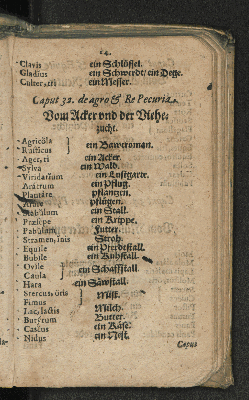 14.
Clavis ein Schlüssel.
Gladius ein Schwerdt/ ein Dege.
Culter, tri ein Messer.
Caput 32. de agro & Re Pecuria.
Vom Acker vnd der Viehe-
zucht.
Agricöla
Rusticus } ein Bawrsman.
Ager, ri ein Acker.
Sylva ein Wald.
Viridarium ein Lustgarte.
Arätrum ein Pflug.
Plantäre pflantzen.
Aräre pflügen.
Stabülum ein Stall.
Præsepe ein Krippe.
Pabülum Futter.
Stramen, inis Stroh.
Equile ein Pferdstall.
Bubile ein Kuhstall.
Ovile
Caula } ein Schaffstall.
Hara ein Säwstall.
Stercus, öris
Fimus } Mist.
Lac, lactis Milch.
Butyrum Butter.
Caseus ein Käse.
Nidus ein Nest.
Caput